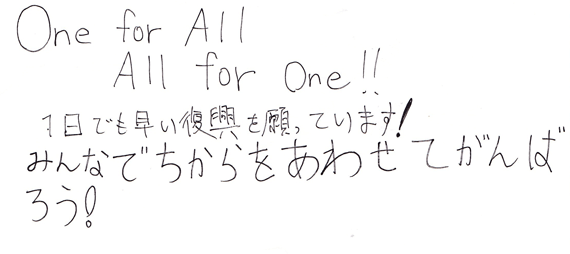 One for All
All for One!!
1日でも早い復興を願っています!
みんなでちからをあわせてがんば
ろう!